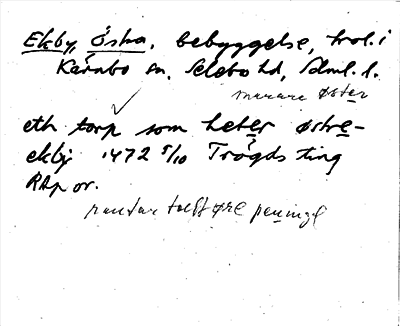 Ekby, Östra, bebyggelse, trol. i
Kärnbo sn, Selebo hd, Sdml. l.
snarare öster
eth torp som heter østre-
ekby 1472 5/10 Trögds ting
RAp or.
tolff øre peninge